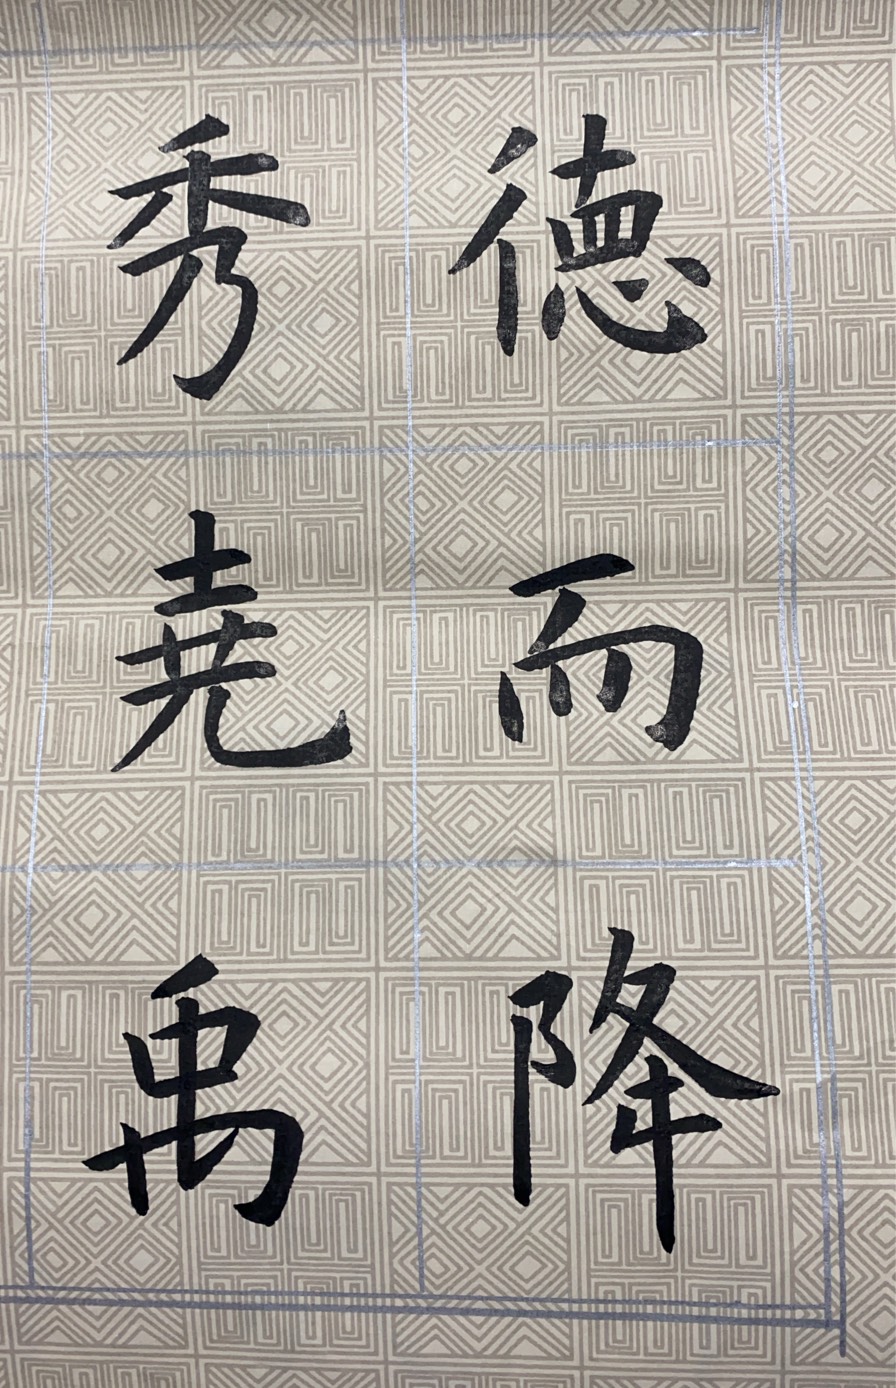 德而降
秀堯禹